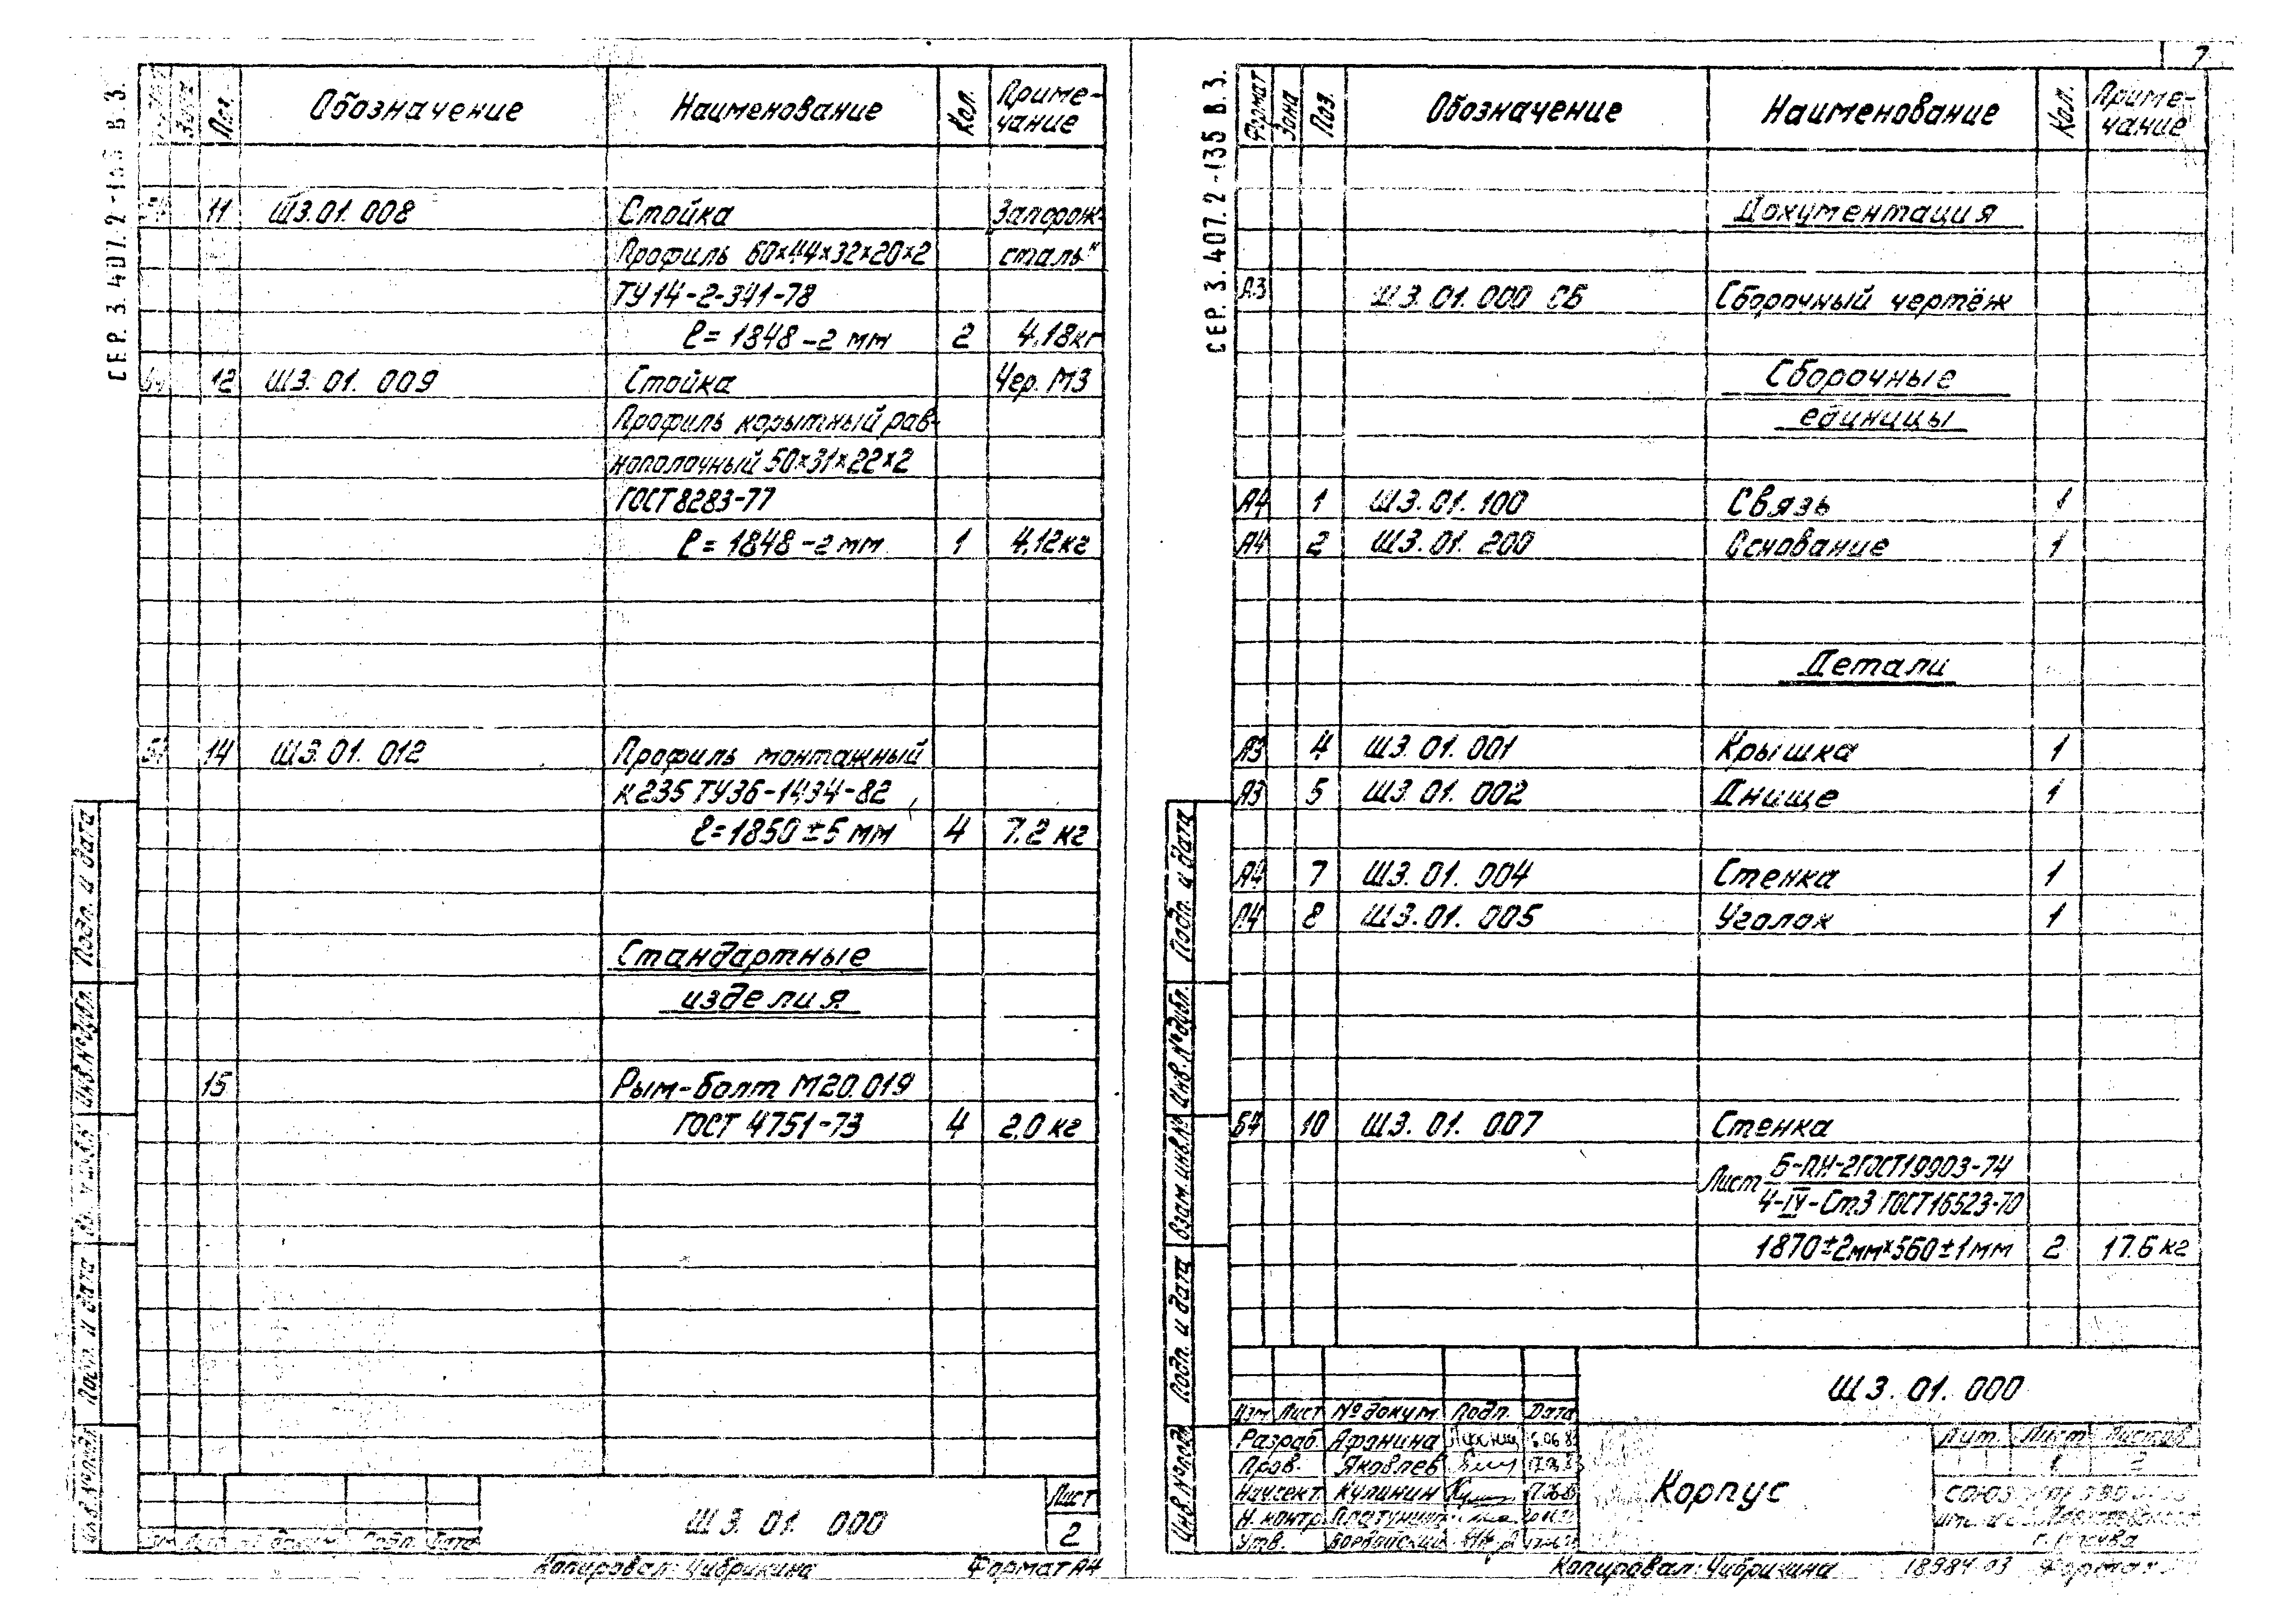 7
СЕР. 3.407.2-135 В.3.
Поз. Обозначение Наименование Кол. Приме-
чание
11 ШЗ.01.008 Стойка Запорож-
Профиль 60×44×32×20×2 сталь"
ТУ14-2-341-78
ℓ=1848-2 мм 2 4.18кг
БЧ 12 ШЗ.01.009 Стойка Чер. МЗ
Профиль корытный рав-
нополочный 50×31×22×2
ГОСТ 8283-77
ℓ=1848-2 мм 1 4,12кг
БЧ 14 ШЗ.01.012 Профиль монтажный
К235 ТУ36-1434-82
ℓ=1850±5 мм 4 7.2 кг
Стандартные
изделия
15 Рым-болт М20.019
ГОСТ 4751-73 4 2.0 кг
Подп. и дата
Инв.№дубл.
Подп. и дата
Инв.№подл.
ШЗ.01.000
Лист
2
Копировал: Чибрикина Формат А4
СЕР. 3.407.2-135 В.3.
Формат Зона Поз. Обозначение Наименование Кол. Приме-
чание
Документация
А3 ШЗ.01.000 СБ Сборочный чертёж
Сборочные
единицы
А4 1 ШЗ.01.100 Связь 1
А4 2 ШЗ.01.200 Основание 1
Детали
А3 4 ШЗ.01.001 Крышка 1
А3 5 ШЗ.01.002 Днище 1
А4 7 ШЗ.01.004 Стенка 1
А4 8 ШЗ.01.005 Уголок 1
БЧ 10 ШЗ.01.007 Стенка
Лист Б-ПН-2ГОСТ19903-74
4-IV-Ст3 ГОСТ16523-70
1870±2мм×560±1мм 2 17.6 кг
Подп. и дата
Инв.№дубл.
Взам.инв.№
Подп. и дата
Инв.№подл
ШЗ.01.000
Изм Лист №докум Подп. Дата
Разраб. Афонина
Пров. Яковлев
Начсект. Кулинин
Н.контр.
Утв.
Корпус
Лит. Лист Листов
1 2
г. Москва
Копировал: Чибрикина 18984-03 Формат